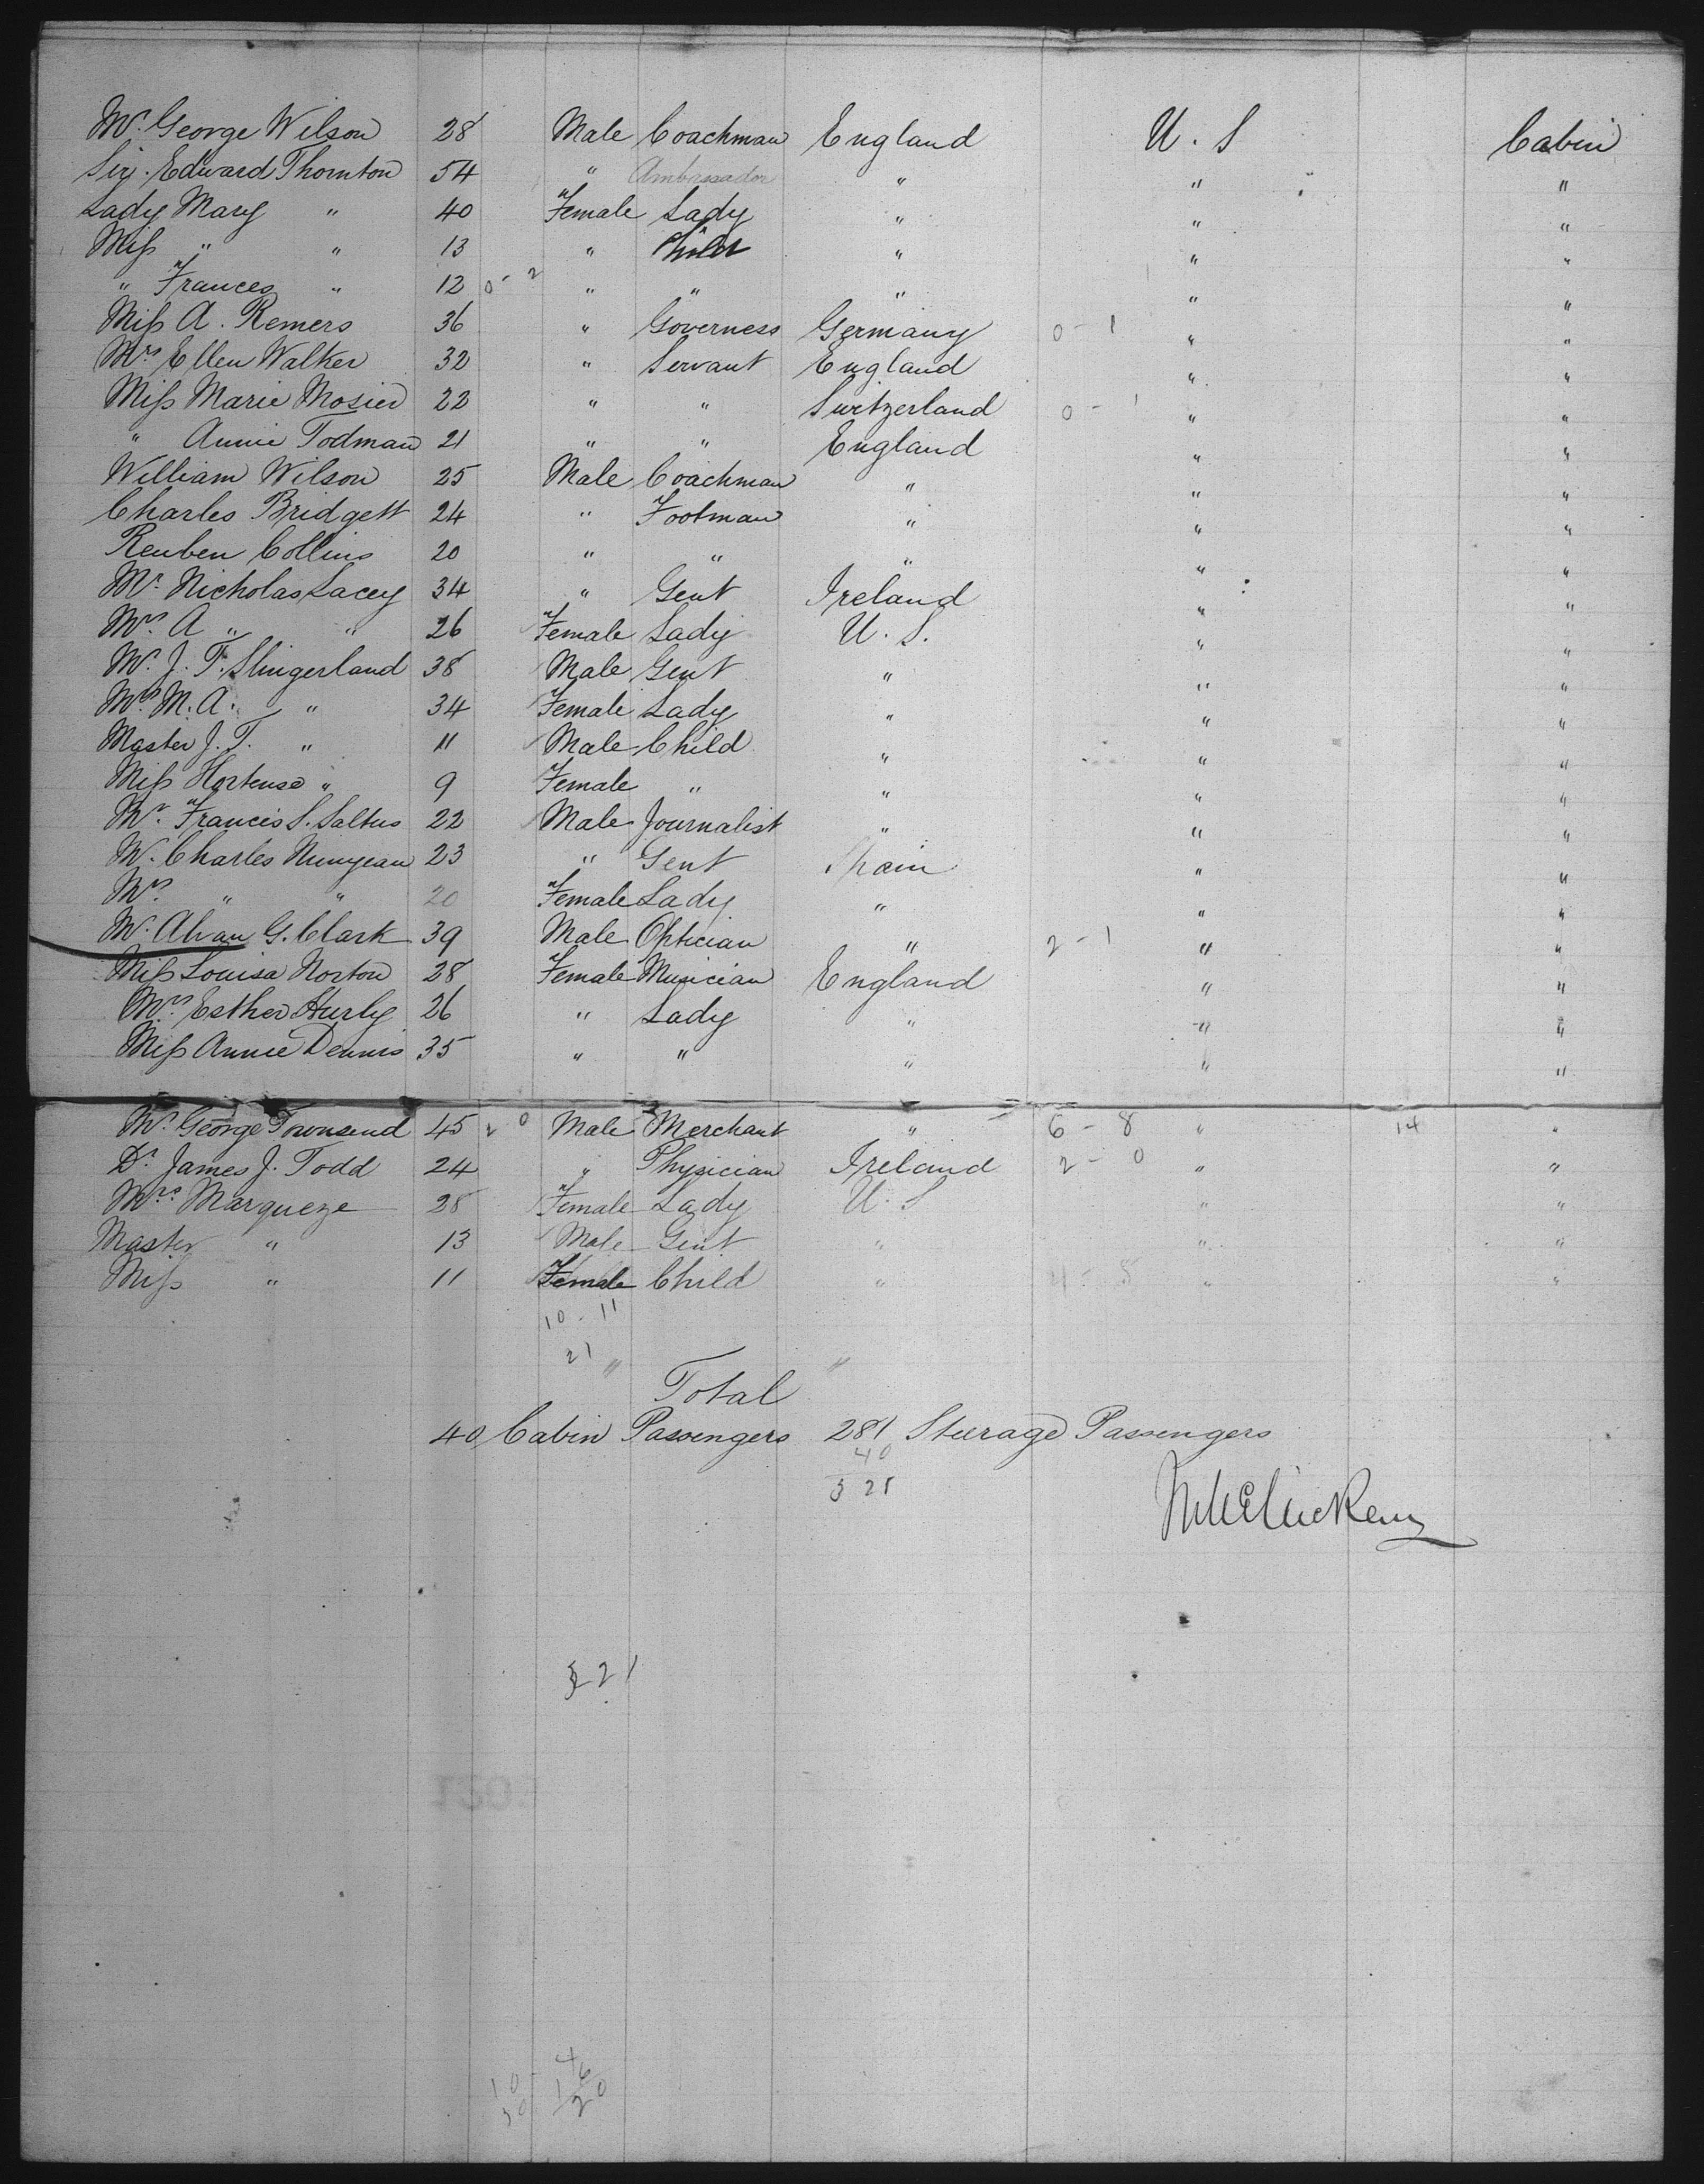 Mr. George Wilson 28 Male Coachman England U. S Cabin
Sir. Edward Thornton 54 " Ambassador " " "
Lady Mary " 40 Female Lady " " "
Miss " " 13 " Child " " "
" Frances " 12 0 - 2 " " " " "
Miss A. Remers 36 " Governess Germany 0 - 1 " "
Mrs Ellen Walker 32 " Servant England " "
Miss Marie Mosier 22 " " Switzerland 0 - 1 " "
" Annie Todman 21 " " England " "
William Wilson 25 Male Coachman " " "
Charles Bridgett 24 " Footman " " "
Reuben Collins 20 " " " " "
Mr. Nicholas Lacey 34 " Gent Ireland " "
Mrs. A " " 26 Female Lady U. S. " "
Mr. J. T. Slingerland 38 Male Gent " " "
Mrs. M. A. " 34 Female Lady " " "
Master J. T. " 11 Male Child " " "
Miss Hortense " 9 Female " " " "
Mr. Francis S. Saltus 22 Male Journalist " " "
Mr. Charles 23 " Gent Spain " "
Mrs. " " 20 Female Lady " " "
Mr. Alvan G. Clark 39 Male Optician " 2 - 1 " "
Miss Louisa Norton 28 Female Musician England " "
Mrs. Esther Hurly 26 " Lady " " "
Miss Annie Dennis 35 " " " " "
Mr. George Townsend 45 2 0 Male Merchant " 6 - 8 " 14 "
Dr. James J. Todd 24 " Physician Ireland 2 - 0 " "
Mrs. Marqueze 28 Female Lady U. S " "
Master " 13 Male Gent " " "
Miss " 11 Female Child " 4 - 5 " "
10 - 11
21 " "
Total
40 Cabin Passengers 281 Steerage Passengers
40
321
321